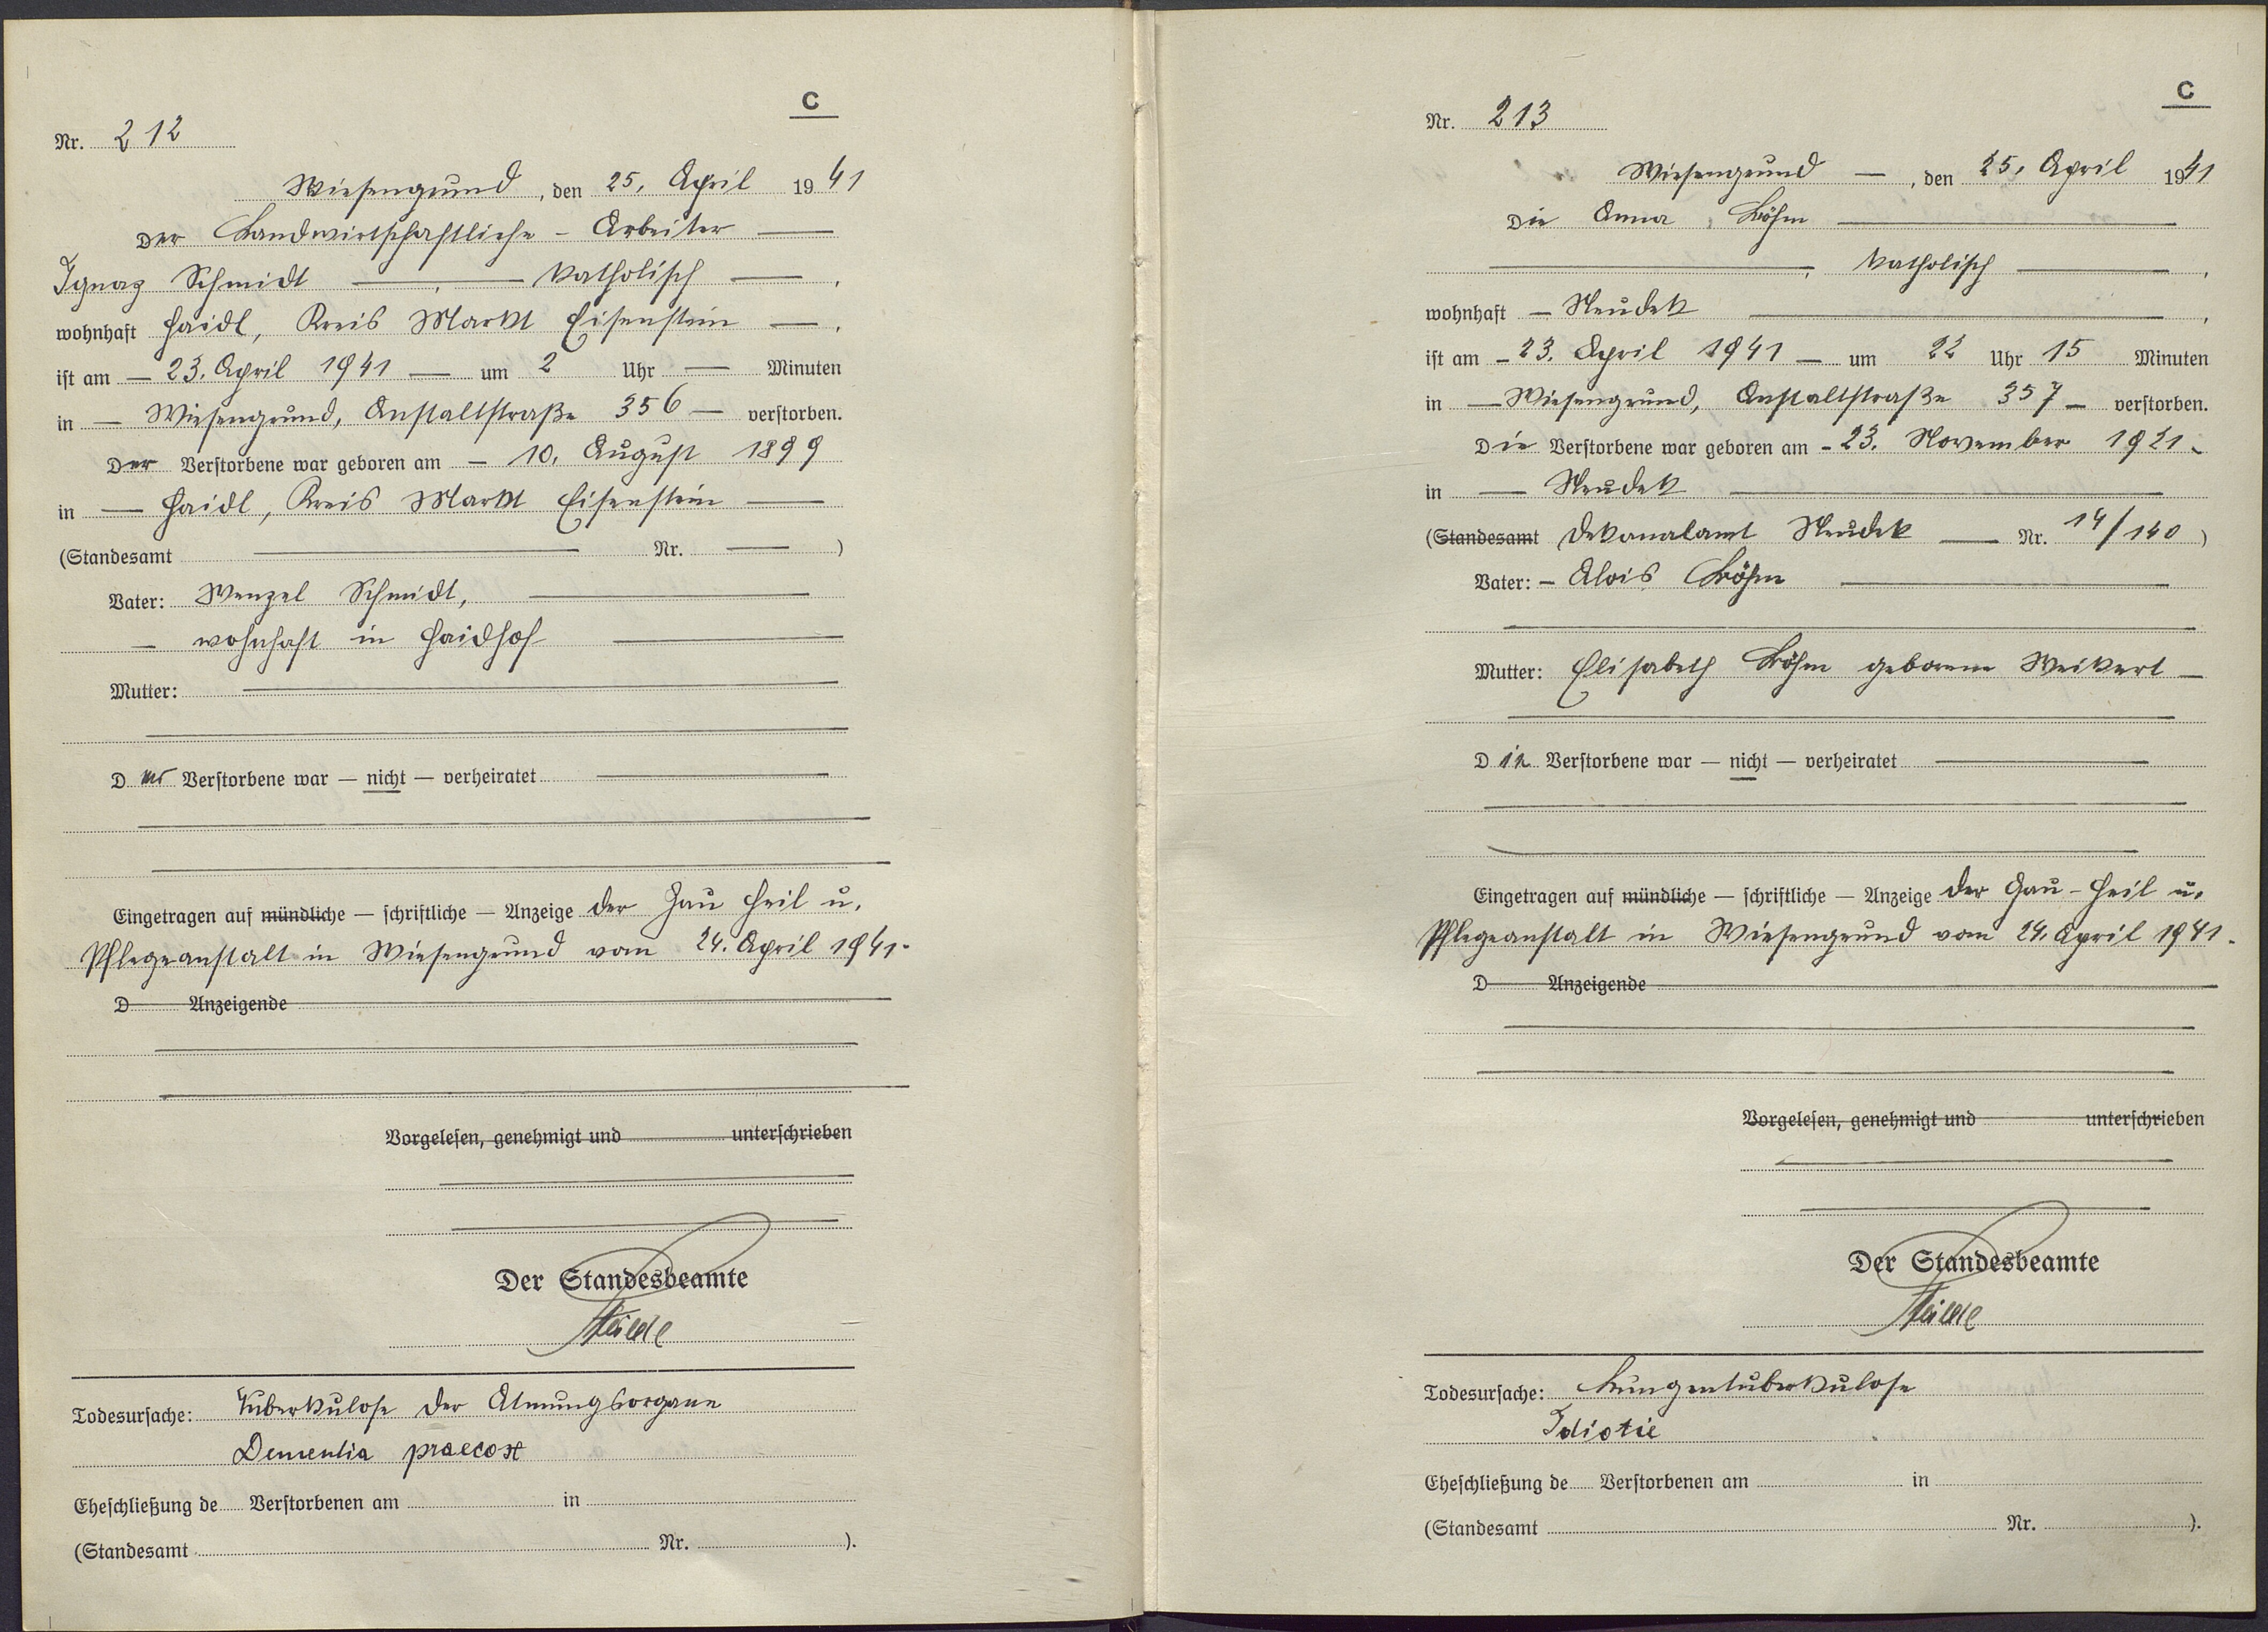 C
Nr. 212
Wiesengrund, den 25. April 1941
Der Landwirtschaftliche - Arbeiter —
Ignaz Schmidt — , — katholisch — ,
wohnhaft Haidl, Kreis Markt Eisenstein — ,
ist am — 23. April 1941 — um 2 Uhr — Minuten
in — Wiesengrund, Anstaltstraße 356 — verstorben.
Der Verstorbene war geboren am — 10. August 1899
in — Haidl, Kreis Markt Eisenstein —
(Standesamt — Nr. — )
Vater: Wenzel Schmidt, —
— wohnhaft in Haidhof —
Mutter: —
Der Verstorbene war — nicht — verheiratet —
Eingetragen auf mündliche — schriftliche — Anzeige der Gau Heil u.
Pflegeanstalt in Wiesengrund vom 24. April 1941.
D Anzeigende
Vorgelesen, genehmigt und unterschrieben
Der Standesbeamte
Todesursache: Tuberkulose der Atmungsorgane
Dementia praecox
Eheschließung de Verstorbenen am in
(Standesamt Nr. ).
C
Nr. 213
Wiesengrund — , den 25. April 1941
Die Anna Böhm —
— , katholisch — ,
wohnhaft — Neudek — ,
ist am - 23. April 1941 — um 22 Uhr 15 Minuten
in — Wiesengrund, Anstaltstraße 357 — verstorben.
Die Verstorbene war geboren am - 23. November 1921 -
in — Neudek —
(Standesamt Dekanalamt Neudek — Nr. 14/140 )
Vater: - Alois Böhm —
Mutter: Elisabeth Böhm geborene Weikert —
Die Verstorbene war — nicht — verheiratet —
Eingetragen auf mündliche — schriftliche — Anzeige der Gau - Heil u.
Pflegeanstalt in Wiesengrund vom 24. April 1941.
D Anzeigende
Vorgelesen, genehmigt und unterschrieben
Der Standesbeamte
Todesursache: Lungentuberkulose
Idiotie
Eheschließung de Verstorbenen am in
(Standesamt Nr. ).